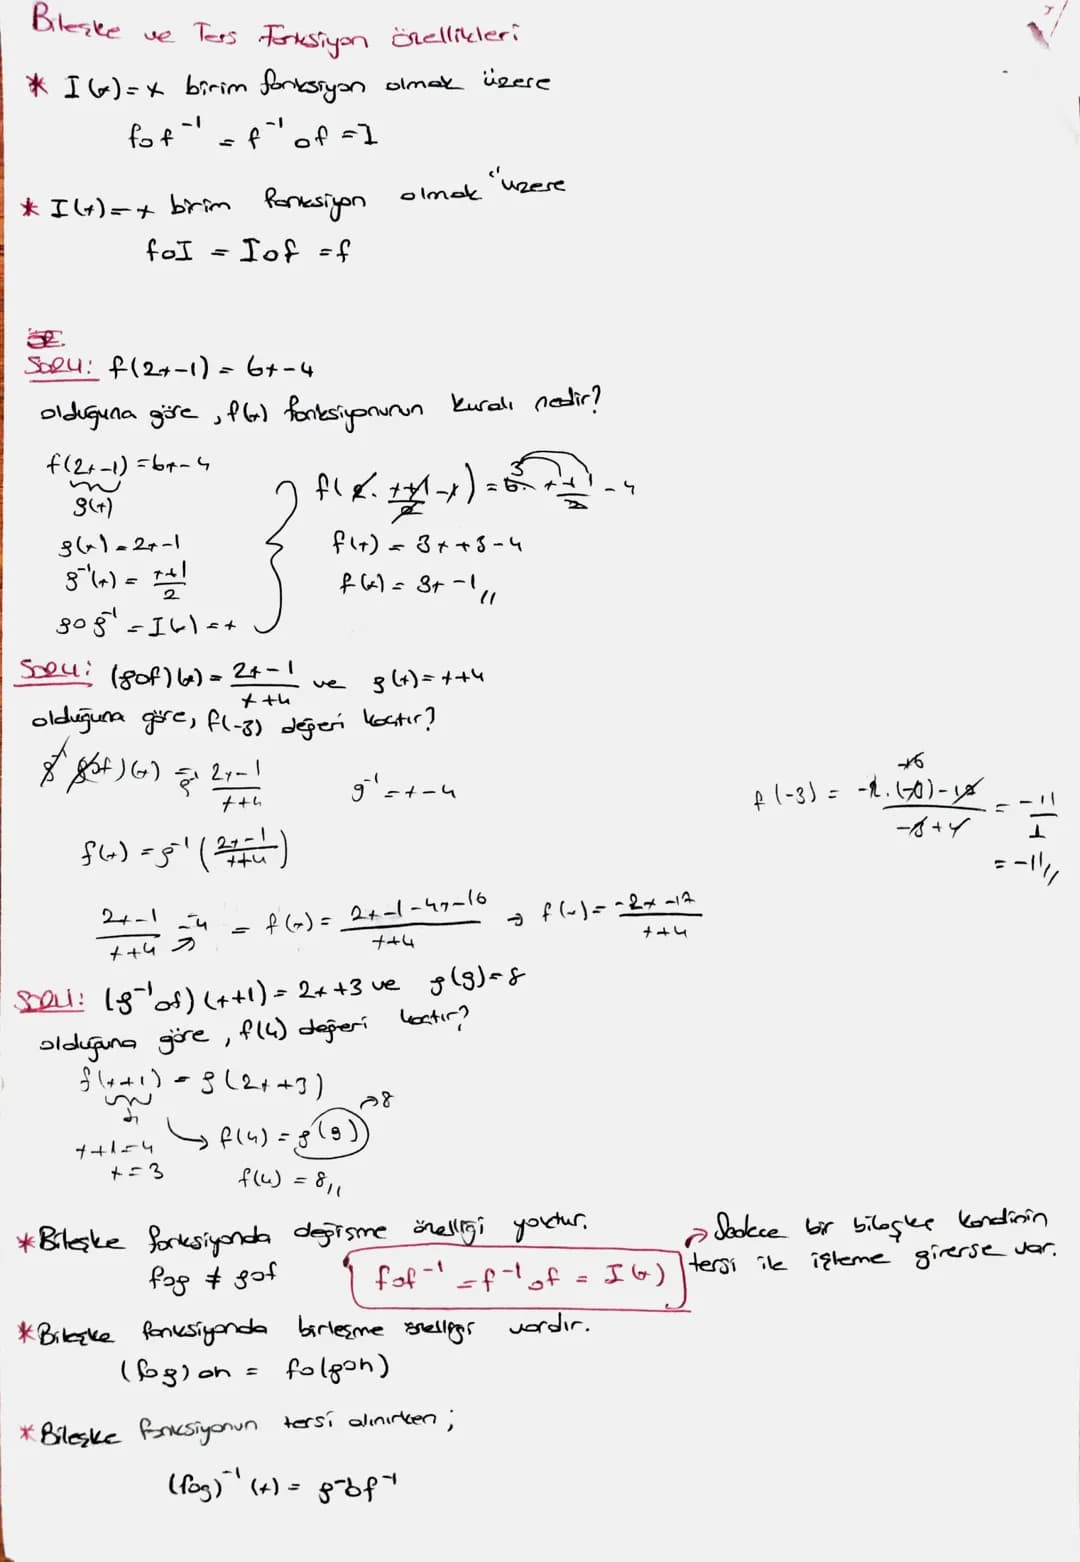 Bileşke ve Ters Fonksiyon Özellikleri
* I(x)=x birim fonksiyon olmak üzere
fof⁻¹ = f⁻¹of = I
* I(x)=x birim fonksiyon olmak üzere
foI = Iof = f
SORU: f(2x-1) = 6x-4
olduğuna göre, f(x) fonksiyonunun kuralı nedir?
f(2x-1) = 6x-4
g(x)
g(x) = 2x-1
g⁻¹(x) = (x+1)/2
gog⁻¹ = I(x) = x
f(2. (x+1)/2 -1) = 6. (x+1)/2 - 4
3
f(x) = 3x+3-4
f(x) = 3x-1//
SORU: (gof)(x) = (2x-1)/(x+4) ve g(x) = x+4
olduğuna göre, f(-3) değeri kaçtır?
g⁻¹(gof)(x) = g⁻¹ (2x-1)/(x+4)
g⁻¹ = x-4
f(x) = g⁻¹((2x-1)/(x+4))
(2x-1)/(x+4) - 4 = f(x) = (2x-1-4x-16)/(x+4) → f(x) = (-2x-17)/(x+4)
= -11/1
= -11//
SORU: (g⁻¹of)(x+1) = 2x+3 ve g(9)=8
olduğuna göre, f(4) değeri kaçtır?
f(x+1) = g(2x+3)
x+1=4
x=3
→ f(4) = g(9) → 8
f(4) = 8//
* Bileşke fonksiyonda değişme özelliği yoktur.
fog ≠ gof
fof⁻¹ = f⁻¹of = I(x)
→ Sadece bir bileşke kendinin
tersi ile işleme girerse var.
* Bileşke fonksiyonda birleşme özelliği vardır.
(fog)oh = fo(goh)
* Bileşke fonksiyonun tersi alınırken;
(fog)⁻¹(x) = g⁻¹of⁻¹